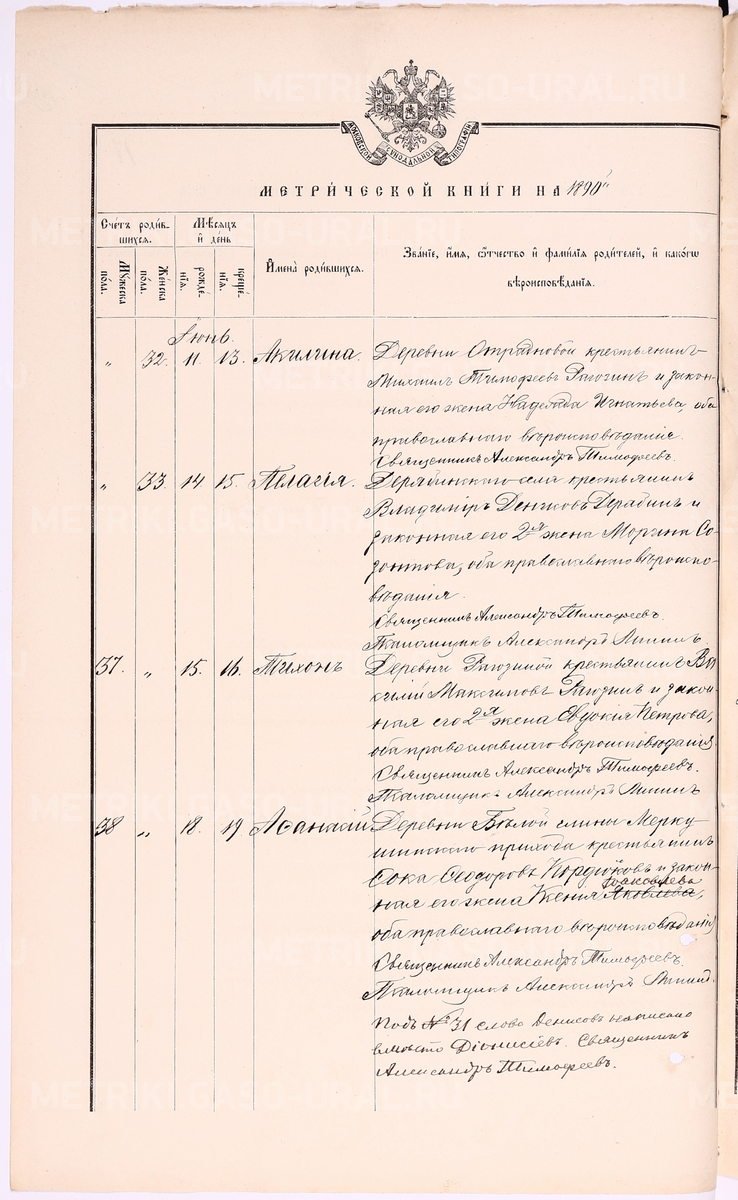 МОСКОВСКОЙ СѴНОДАЛЬНОЙ ТИПОГРАФІИ
МЕТРИ́ЧЕСКОЙ КНИ́ГИ НА 1890
Сче́тъ роди́в-
шихся.
Мѣ́сяцъ
и҆ де́нь
И҆мена̀ роди́вшихся.
Зва́ніе, и҆́мя, ѻ҆́тчество и҆ фами́лія роди́телей, и҆ како́гѡ
вѣроисповѣ́данія.
Мꙋ́жеска
пола.
Же́нска
пола.
рожде́-
нїѧ.
креще́-
нїѧ.
Іюнь.
„ 32. 11. 13. Акилина. Деревни Отрадновой крестьянинъ
Михаилъ Тимофеевъ Рагозинъ и закон-
ная его жена Надежда Игнатьева, оба
православнаго вѣроисповѣданія.
Священникъ Александръ Тимофеевъ.
„ 33 14 15. Пелагія. Дерябинскаго села крестьянинъ
Владиміръ Денисовъ Дерабинъ и
законная его 2я жена Марина Со-
зонтова, оба православнаго вѣроиспо-
вѣданія.
Священникъ Александръ Тимофеевъ.
Псаломщикъ Александръ
37. „ 15. 16. Тихонъ Деревни Рагозиной крестьянинъ Ва-
силій Максимовъ Рагозинъ и закон-
ная его 2я жена Евдокія Петрова,
оба православнаго вѣроисповѣданія.
Священникъ Александръ Тимофеевъ.
Псаломщикъ Александръ
38 „ 18. 19. Аѳанасій Деревни Бѣлой глины Мерку-
шинскаго прихода крестьянинъ
Сока Ѳеодоровъ Кордюковъ и закон-
ная его жена Ксенія Яковлева,
оба православнаго вѣроисповѣданія
Священникъ Александръ Тимофеевъ.
Псаломщикъ Александръ
Подъ № 31 слово Денисовъ написано
вмѣсто Діонисіевъ. Священникъ
Александръ Тимофеевъ.